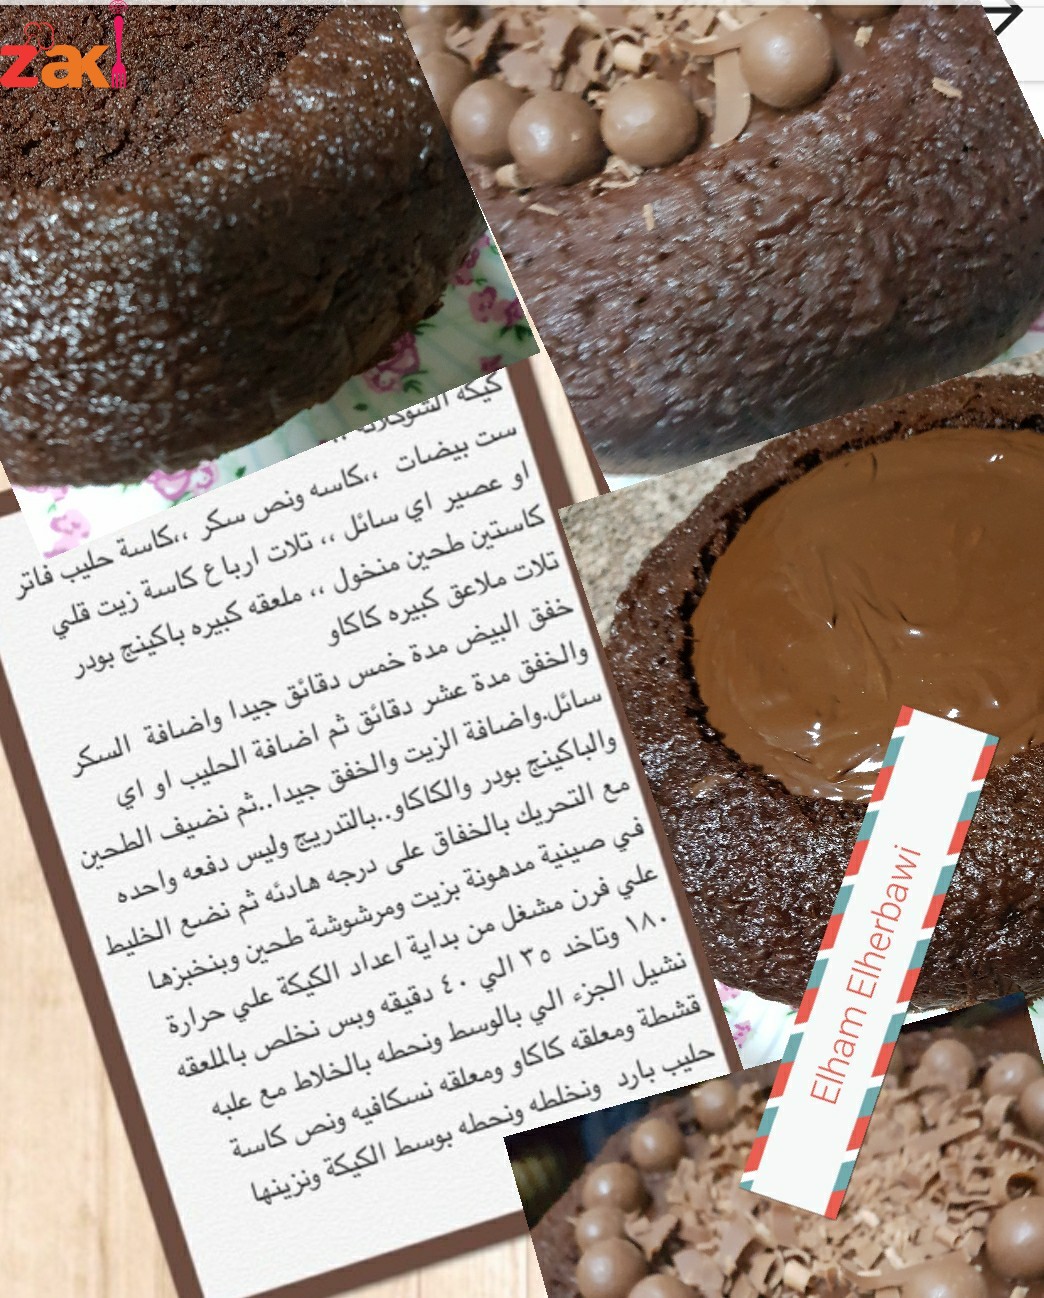 zaki
كيكة الشوكلاته ..
ست بيضات ،،كاسه ونص سكر ،،كاسة حليب فاتر
او عصير اي سائل ،، تلات ارباع كاسة زيت قلي
كاستين طحين منخول ،، ملعقه كبيره باكينج بودر
تلات ملاعق كبيره كاكاو
خفق البيض مدة خمس دقائق جيدا واضافة السكر
والخفق مدة عشر دقائق ثم اضافة الحليب او اي
سائل.واضافة الزيت والخفق جيدا..ثم نضيف الطحين
والباكينج بودر والكاكاو..بالتدريج وليس دفعه واحده
مع التحريك بالخفاق على درجه هادئه ثم نضع الخليط
في صينية مدهونة بزيت ومرشوشة طحين وبنخبزها
علي فرن مشغل من بداية اعداد الكيكة علي حرارة
١٨٠ وتاخد ٣٥ الي ٤٠ دقيقه وبس نخلص بالملعقه
نشيل الجزء الي بالوسط ونحطه بالخلاط مع علبه
قشطة ومعلقه كاكاو ومعلقه نسكافيه ونص كاسة
حليب بارد ونخلطه ونحطه بوسط الكيكة ونزينها
Elham Elherbawi